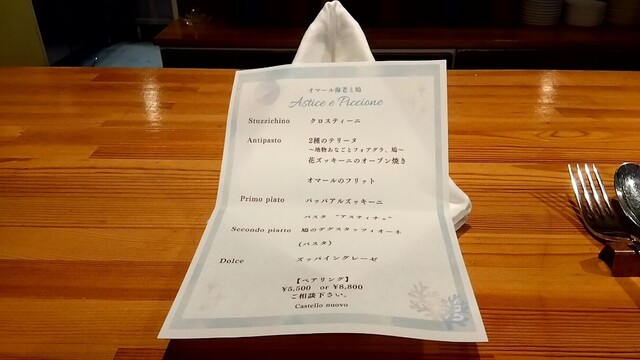 オマール海老と鳩
Astice e Piccione
Stuzzichino クロスティーニ
Antipasto 2種のテリーヌ
～地物おなごとフォアグラ、鳩～
花ズッキーニのオーブン焼き
オマールのフリット
Primo piato パッパアルズッキーニ
パスタ "アスティチェ"
Secondo piatto 鳩のデグスタッフィオーネ
(パスタ)
Dolce ズッパイングレーゼ
【ペアリング】
¥5,500 or ¥8,800
ご相談下さい。
Castello nuovo